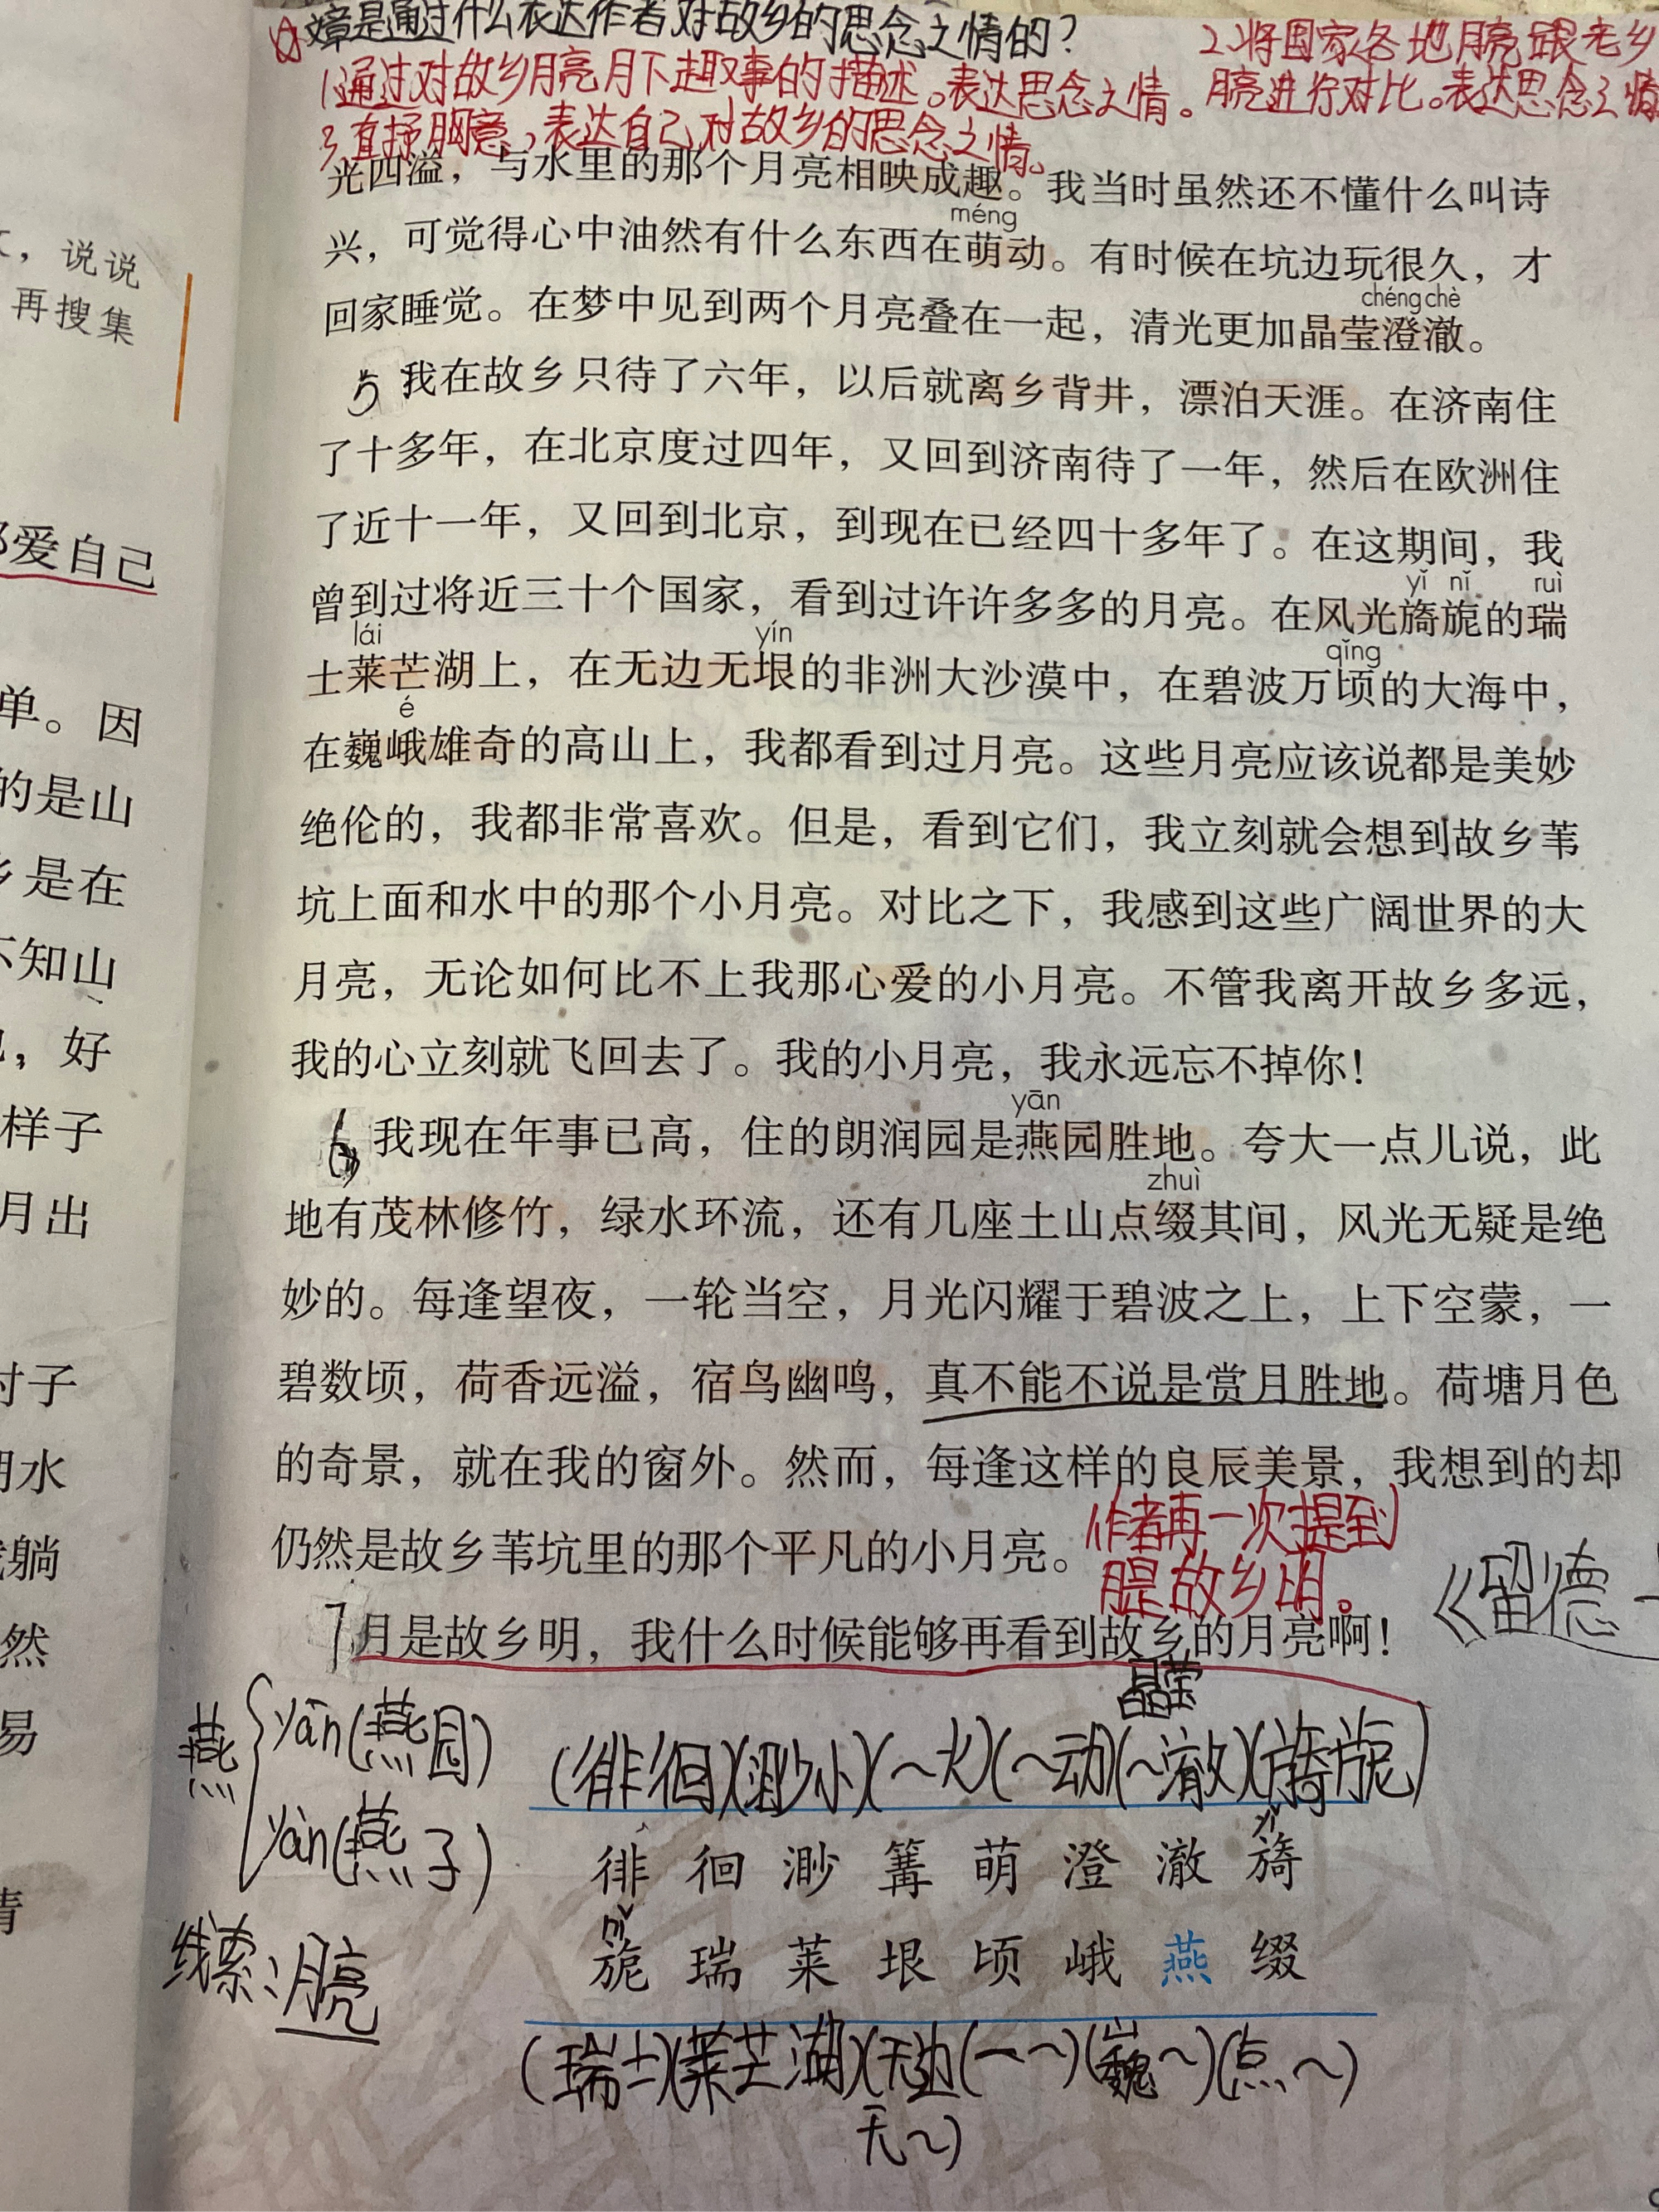 文章是通过什么表达作者对故乡的思念之情的？
1.通过对故乡月亮月下趣事的描述。表达思念之情。
2.将国家各地月亮跟老乡
月亮进行对比。表达思念之情
3.直抒胸意，表达自己对故乡的思念之情。
光四溢，与水里的那个月亮相映成趣。我当时虽然还不懂什么叫诗
méng
兴，可觉得心中油然有什么东西在萌动。有时候在坑边玩很久，才
chéng chè
回家睡觉。在梦中见到两个月亮叠在一起，清光更加晶莹澄澈。
5 我在故乡只待了六年，以后就离乡背井，漂泊天涯。在济南住
了十多年，在北京度过四年，又回到济南待了一年，然后在欧洲住
了近十一年，又回到北京，到现在已经四十多年了。在这期间，我
yǐ nǐ ruì
曾到过将近三十个国家，看到过许许多多的月亮。在风光旖旎的瑞
lái yín qǐng
士莱芒湖上，在无边无垠的非洲大沙漠中，在碧波万顷的大海中，
é
在巍峨雄奇的高山上，我都看到过月亮。这些月亮应该说都是美妙
绝伦的，我都非常喜欢。但是，看到它们，我立刻就会想到故乡苇
坑上面和水中的那个小月亮。对比之下，我感到这些广阔世界的大
月亮，无论如何比不上我那心爱的小月亮。不管我离开故乡多远，
我的心立刻就飞回去了。我的小月亮，我永远忘不掉你！
yān
6 我现在年事已高，住的朗润园是燕园胜地。夸大一点儿说，此
zhuì
地有茂林修竹，绿水环流，还有几座土山点缀其间，风光无疑是绝
妙的。每逢望夜，一轮当空，月光闪耀于碧波之上，上下空蒙，一
碧数顷，荷香远溢，宿鸟幽鸣，真不能不说是赏月胜地。荷塘月色
的奇景，就在我的窗外。然而，每逢这样的良辰美景，我想到的却
仍然是故乡苇坑里的那个平凡的小月亮。
作者再一次提到
月是故乡明。
7 月是故乡明，我什么时候能够再看到故乡的月亮啊！
《留德
晶莹
燕
yān(燕园)
yàn(燕子)
(徘徊)(渺小)(～火)(～动)(～澈)(旖旎)
yǐ
徘 徊 渺 篝 萌 澄 澈 旖
nǐ
旎 瑞 莱 垠 顷 峨 燕 缀
线索：月亮
(瑞士)(莱芒湖)(无边(一～)(巍～)(点～)
无～)
文，说说
再搜集
都爱自己
单。因
的是山
乡是在
不知山
，好
样子
月出
对子
明水
躺
然
易
情